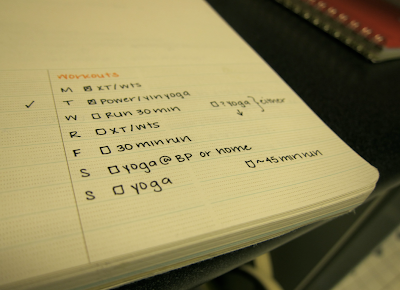 workouts
M ☒ XT/wts
T ☒ Power/yin yoga
W ☐ Run 30 min ☐ ? yoga } either
R ☐ XT/wts
F ☐ 30 min run
S ☐ yoga @ BP or home ☐ ~45 min run
S ☐ yoga